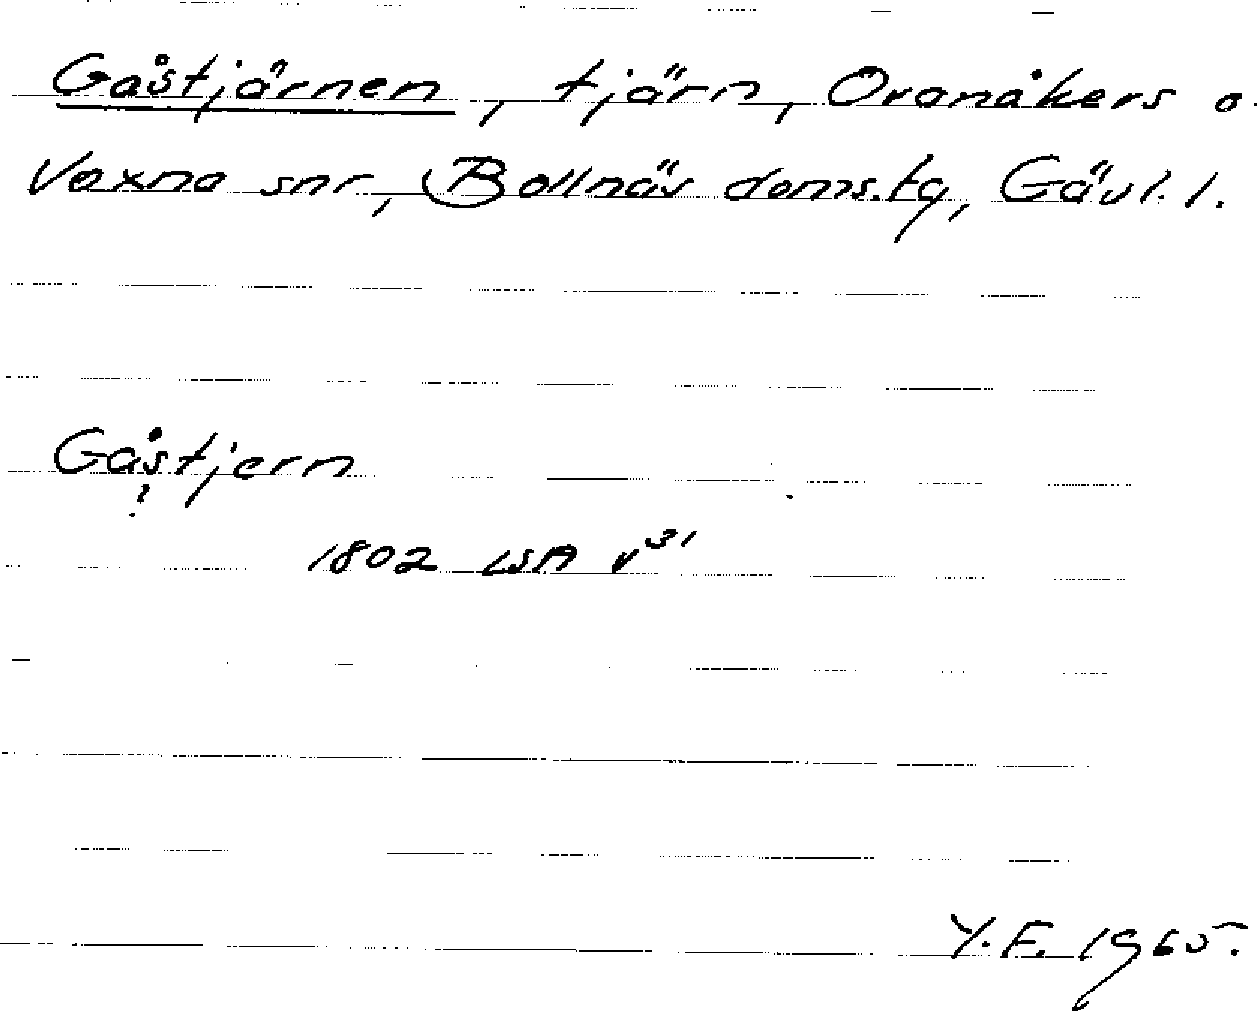 Gåstjärnen, tjärn, Ovanåkers o.
Voxna snr, Bollnäs doms.tg, Gävl. l.
Gåstjern
!
1802 LSA v³¹
Y.F. 1965.